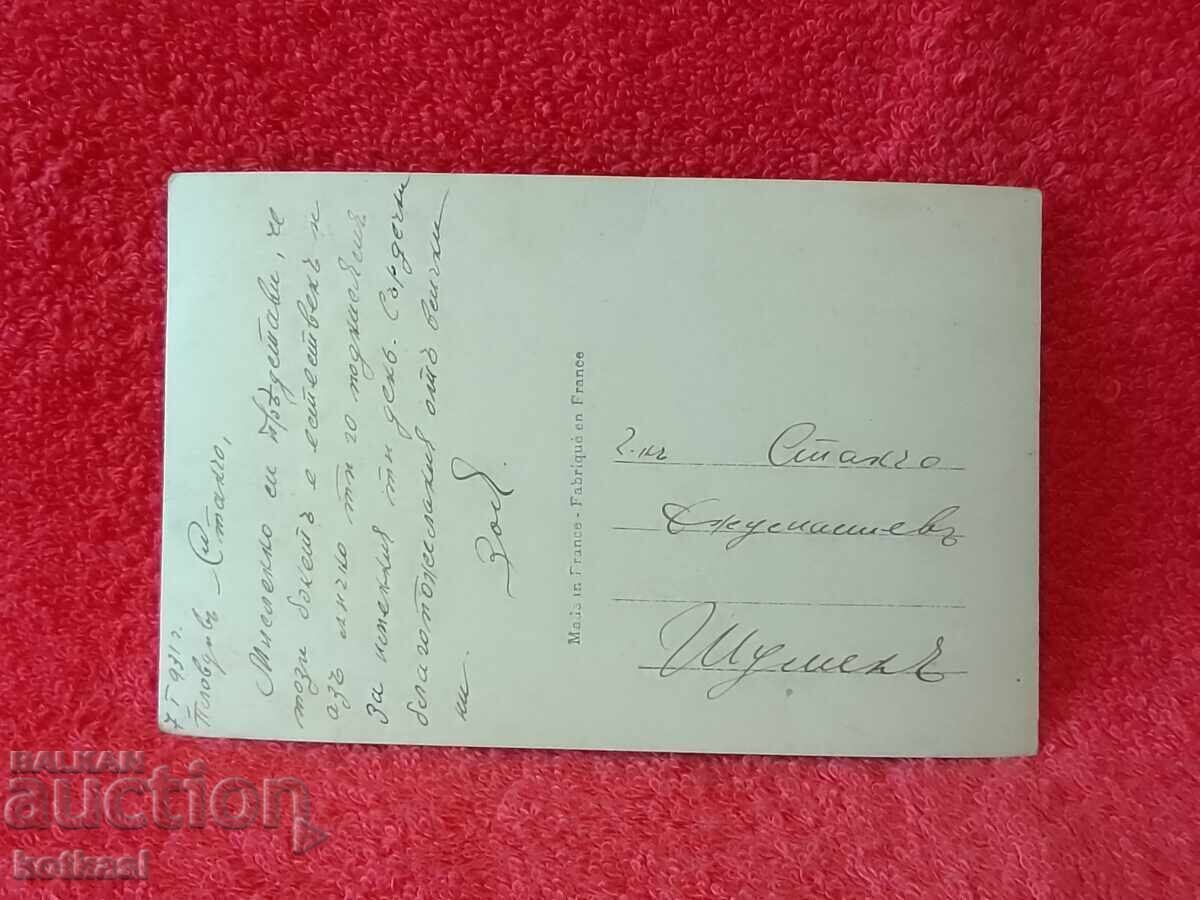 7 I 931 г.
Пловдивъ
Станчо,
Мислено си прѣдстави, че
този букетъ е естественъ и
азъ лично ти го поднасямъ
за именния ти день. Сърдечни
благопожелания отъ всички
ни.
Зоя.
Made in France - Fabriqué en France
Г-нъ Станчо
Джумалиевъ
Шуменъ
BALKAN
auction
kotkasl